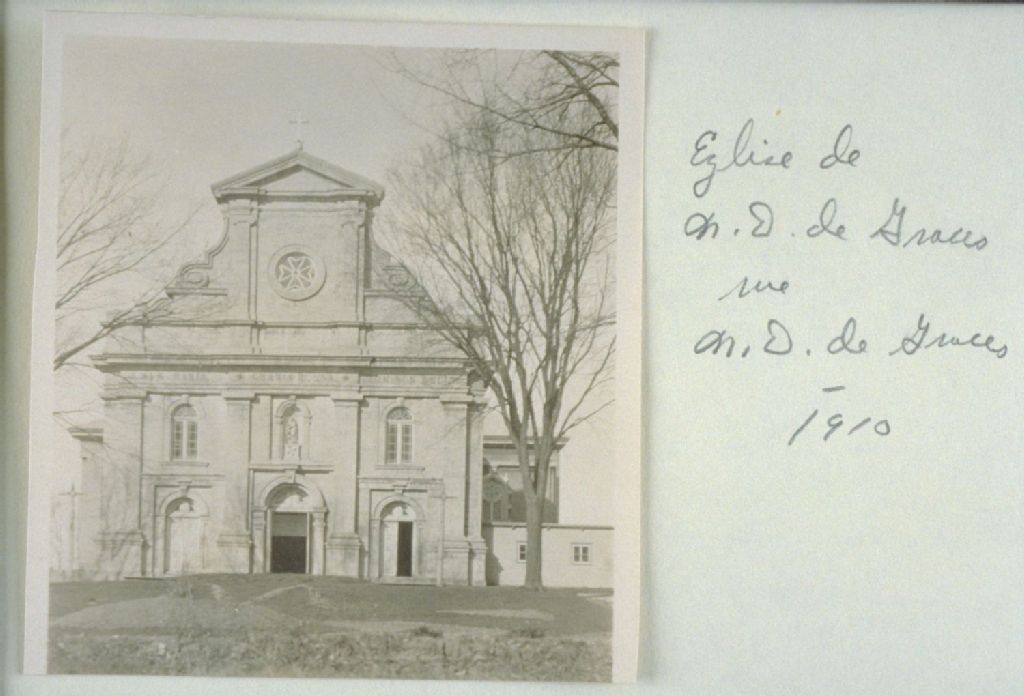 Eglise de
N. D. de Grâces
rue
N. D. de Grâces
1910